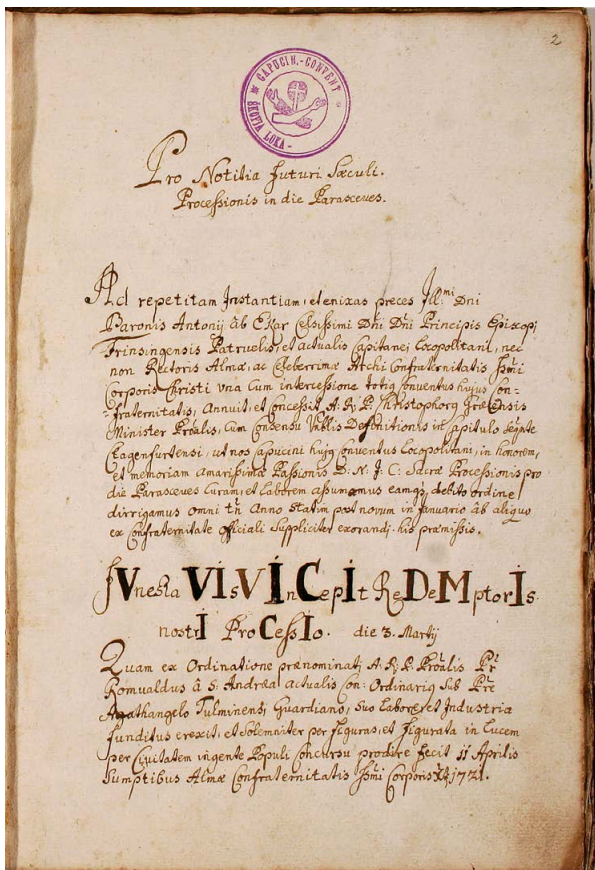 2
CAPUCIN.-CONVENT
ŠKOFJA LOKA
Pro Notitia futuri Sæculi.
Processionis in die Parasceves.
Ad repetitam Instantiam, et enixas preces Ill:mi Dni
Baronis Antonij ab Ekar Celsissimi Dni Dni Principis Episcopi
Frinsingensis Patruelis, et actualis Capitanei Locopolitani, nec
non Rectoris Almæ, ac Celeberrimæ Archi Confraternitatis Ssmi
Corporis Christi vna Cum intercessione totiq conventus hujus Con-
fraternitatis, Annuit, et Concessit A. R. P. Christophorq Græcensis
Minister Proalis, Cum Consensu Definitionis in Capitulo
Clagenfurtensi, ut nos Capucini hujq Conventus Locopolitani, in honorem,
et memoriam amarissimæ Passionis D: N: J: C: Sacræ Processionis pro
die Parasceves Curam, et Laborem assumamus eamq, debito ordine
dirrigamus omni tn Anno statim post novum in Januario ab aliquo
ex Confraternitate officiali Suppliciter exorandj. his præmissis.
fVnesta VIsVInCepIt ReDeMptorIs
nostrI ProCessIo. die 3. Martij
Quam ex Ordinatione prænominati A. R. P. Proalis Pr
Romualdus â S: Andræa actualis Con: Ordinariq Sub Pre
Agathangelo Tulminensi Guardiano, Suo Labore, et Industria
funditus erexit, et Solemniter per figuras, et figurata in Lucem
per Civitatem ingente Populi Concursu prodire fecit 11 Aprilis
Sumptibus Almæ Confraternitatis Ssmi Corporis Xti 1721.